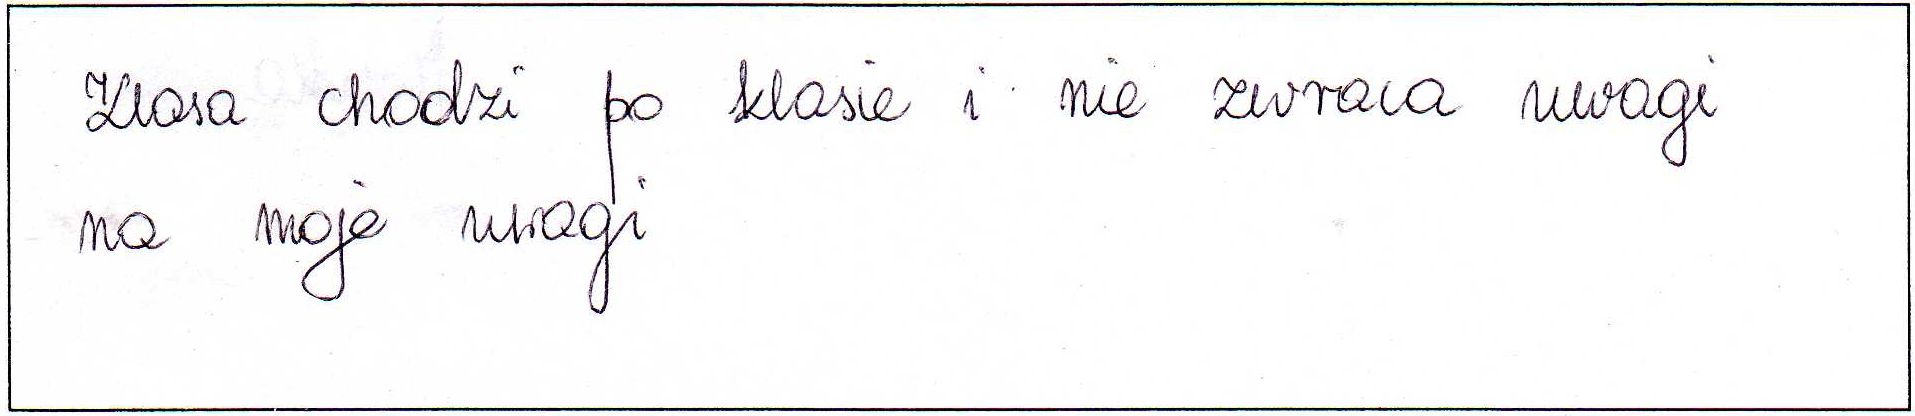 Klasa chodzi po klasie i nie zwraca uwagi
na moje uwagi